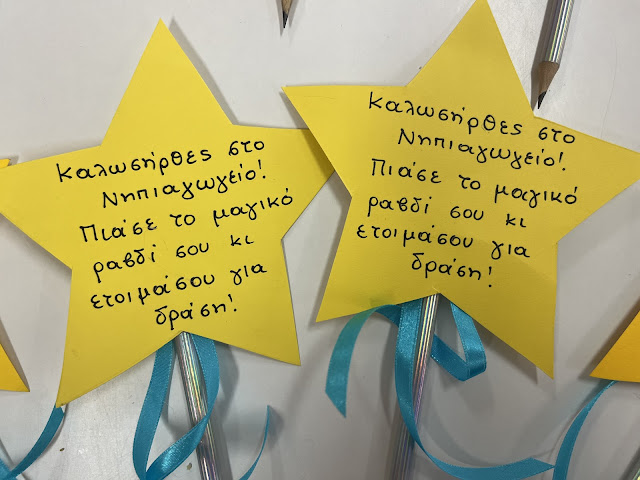 Καλωσήρθες στο
Νηπιαγωγείο!
Πιάσε το μαγικό
ραβδί σου κι
ετοιμάσου για
δράση!
Καλωσήρθες στο
Νηπιαγωγείο!
Πιάσε το μαγικό
ραβδί σου κι
ετοιμάσου για
δράση!